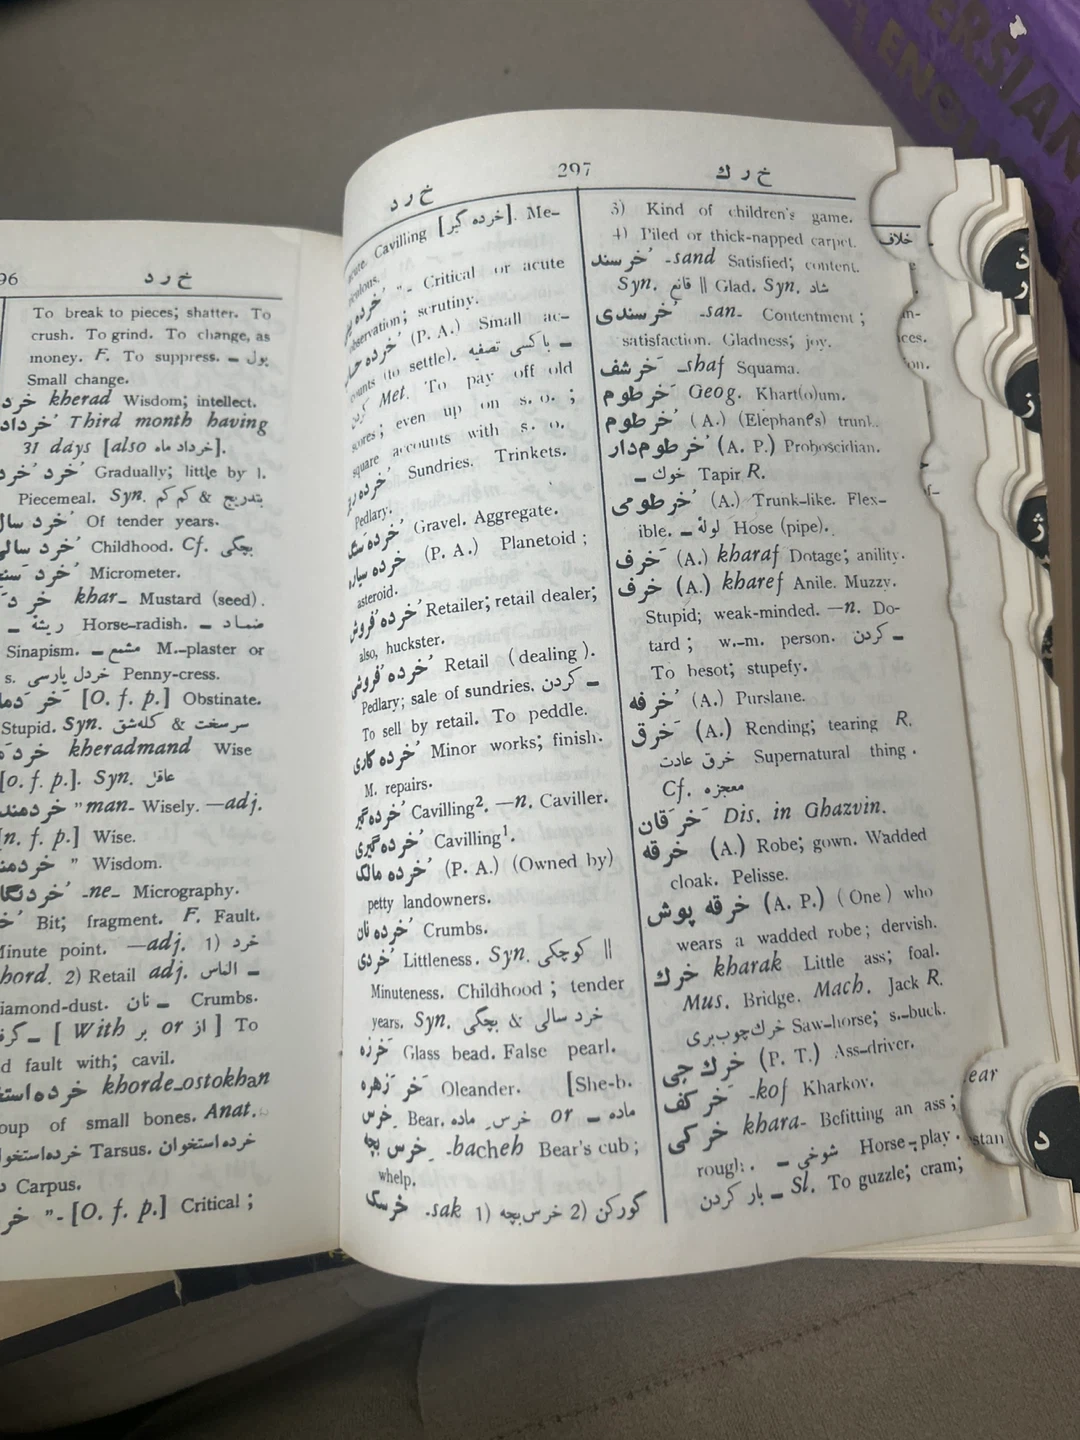 96
خ ر د
To break to pieces; shatter. To
crush. To grind. To change, as
money. F. To suppress. ـ پول
Small change.
خرد kherad Wisdom; intellect.
خرداد Third month having
31 days [also خرداد ماه].
خرد خرد Gradually; little by l.
Piecemeal. Syn. بتدریج & کم کم
خرد سال Of tender years.
خرد سالی Childhood. Cf. بچگی
خرد سنج Micrometer.
khar- Mustard (seed).
ـ ریشهٔ Horse-radish. ـ ضماد
Sinapism. ـ مشمع M.-plaster or
s. خردل پارسی Penny-cress.
[O. f. p.] Obstinate.
Stupid. Syn. کله‌شق & سرسخت
kheradmand Wise
[o. f. p.]. Syn. عاقل
" man- Wisely. —adj.
[n. f. p.] Wise.
" Wisdom.
-ne- Micrography.
Bit; fragment. F. Fault.
Minute point. —adj. 1) خرد
khord. 2) Retail adj. ـ الماس
Diamond-dust. ـ نان Crumbs.
[With بر or از] To
find fault with; cavil.
khorde-ostokhan
Group of small bones. Anat.
Tarsus. خرده استخوان
Carpus.
"- [O. f. p.] Critical;
خ ر د
297
خ ر ك
Cavilling [خرده گیر]. Me-
ticulous.
"- Critical or acute
observation; scrutiny.
خرده حساب (P. A.) Small ac-
counts (to settle). ـ باکسی تصفیه
کردن Met. To pay off old
scores; even up on s. o.;
square accounts with s. o.
Sundries. Trinkets.
Pedlary.
خرده سنگ Gravel. Aggregate.
خرده سیاره (P. A.) Planetoid;
asteroid.
خرده فروش Retailer; retail dealer;
also, huckster.
خرده فروشی Retail (dealing).
Pedlary; sale of sundries. ـ کردن
To sell by retail. To peddle.
خرده کاری Minor works; finish.
M. repairs.
خرده‌گیر Cavilling². —n. Caviller.
خرده‌گیری Cavilling¹.
خرده مالك (P. A.) (Owned by)
petty landowners.
خرده نان Crumbs.
خردی Littleness. Syn. کوچکی ||
Minuteness. Childhood; tender
years. Syn. خرد سالی & بچگی
خرزه Glass bead. False pearl.
خر زهره Oleander. [She-b.
خرس Bear. خرس ماده or ـ ماده
خرس بچه -bacheh Bear's cub;
whelp.
خرسک -sak 1) خرس‌بچه 2) گورکن
3) Kind of children's game.
4) Piled or thick-napped carpet.
خرسند -sand Satisfied; content.
Syn. قانع || Glad. Syn. شاد
خرسندی -san- Contentment;
satisfaction. Gladness; joy.
خرشف -shaf Squama.
خرطوم Geog. Khart(o)um.
خرطوم (A.) (Elephant's) trunk.
خرطوم‌دار (A. P.) Proboscidian.
ـ خوك Tapir R.
خرطومی (A.) Trunk-like. Flex-
ible. ـ لولهٔ Hose (pipe).
خرف (A.) kharaf Dotage; anility.
خرف (A.) kharef Anile. Muzzy.
Stupid; weak-minded. —n. Do-
tard; w.-m. person. ـ کردن
To besot; stupefy.
خرفه (A.) Purslane.
خرق (A.) Rending; tearing R.
خرق عادت Supernatural thing.
Cf. معجزه
خرقان Dis. in Ghazvin.
خرقه (A.) Robe; gown. Wadded
cloak. Pelisse.
خرقه پوش (A. P.) (One) who
wears a wadded robe; dervish.
خرك kharak Little ass; foal.
Mus. Bridge. Mach. Jack R.
خرك‌چوب‌بری Saw-horse; s.-buck.
خرك جی (P. T.) Ass-driver.
خر کف -kof Kharkov.
خر کی khara- Befitting an ass;
rough. ـ شوخی Horse-play.
ـ بار کردن Sl. To guzzle; cram;
خلاف
ذ
ر
ز
ژ
د
PERSIAN